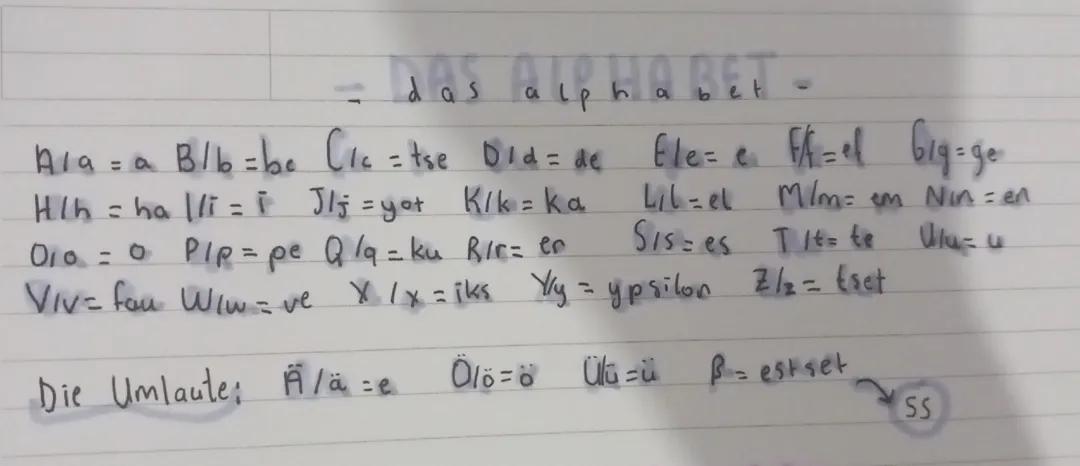 - DAS ALPHABET -
- das alphabet -
A/a = a B/b = be C/c = tse D/d = de E/e = e F/f = ef G/g = ge
H/h = ha I/i = i J/j = yot K/k = ka L/l = el M/m = em N/n = en
O/o = o P/p = pe Q/q = ku R/r = er S/s = es T/t = te U/u = u
V/v = fau W/w = ve X/x = iks Y/y = ypsilon Z/z = tset
Die Umlaute: Ä/ä = e Ö/ö = ö Ü/ü = ü β = estset
ss